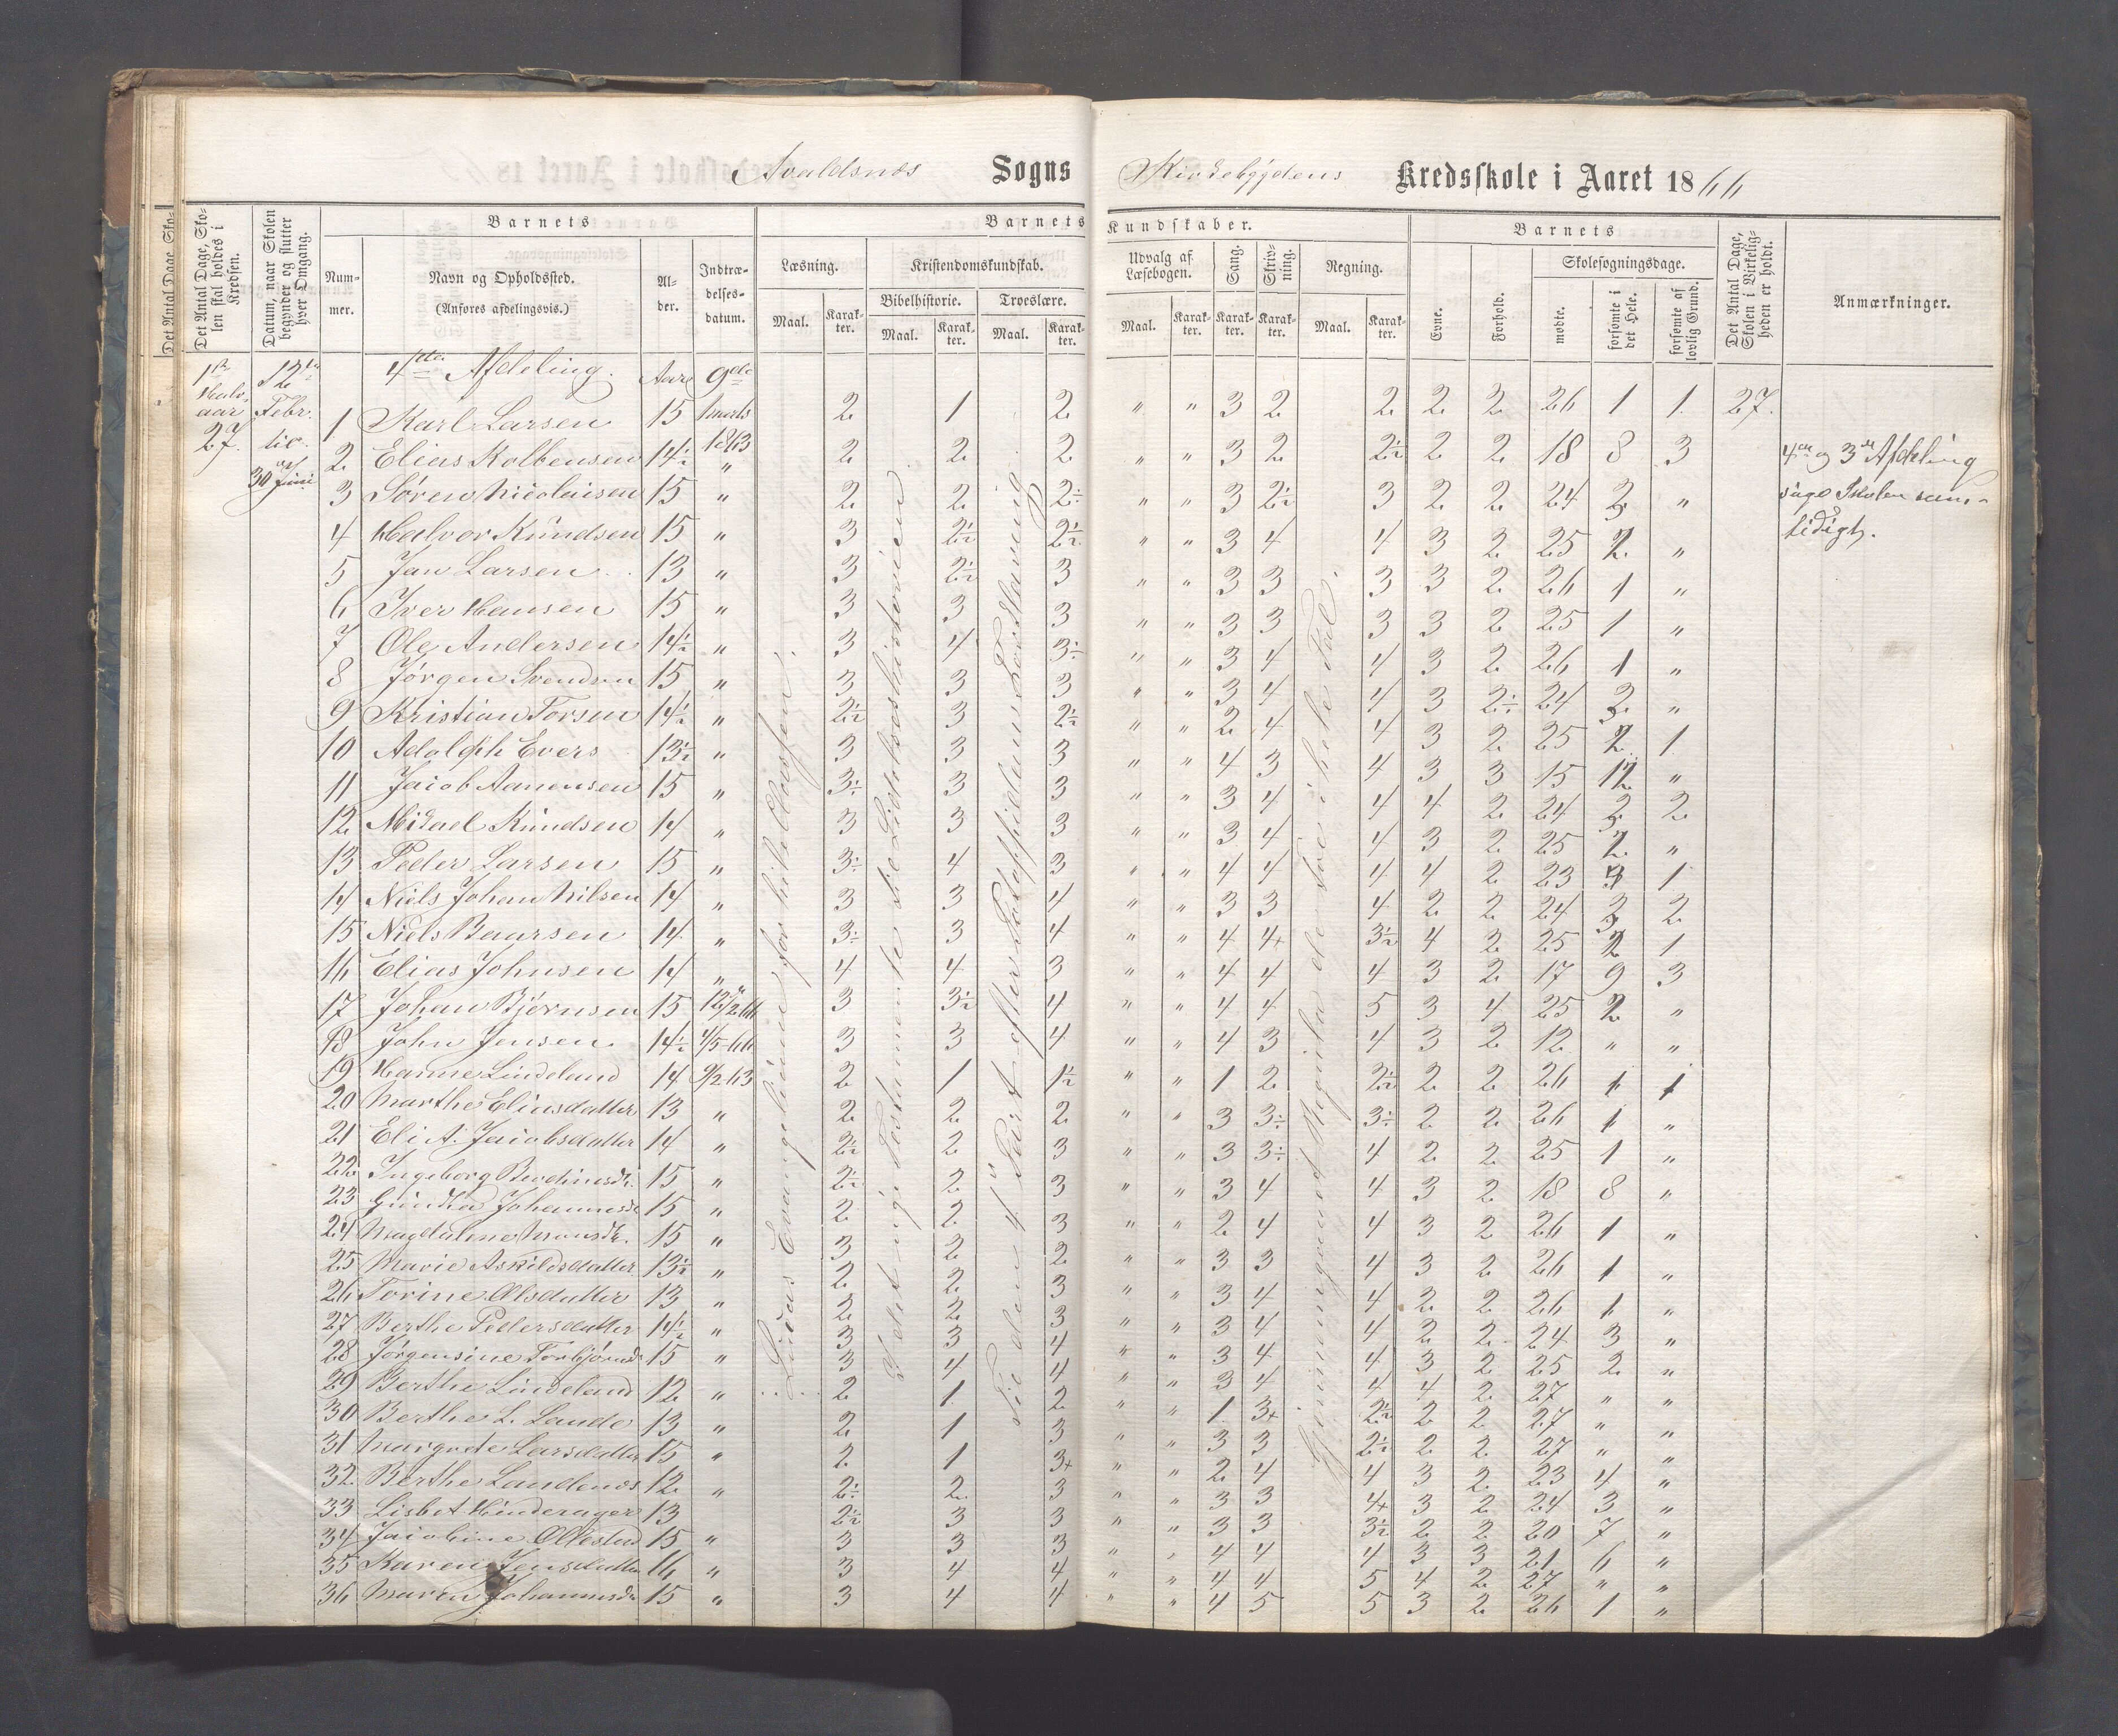 Avaldsnes Sogns Kirkebygdens Kredsskole i Aaret 1866
Det Antal Dage, Skolen skal holdes i Kredsen.
Datum, naar Skolen begynder og slutter hver Omgang.
Barnets
Nummer.
Navn og Opholdssted.
(Anføres afdelingsvis.)
Alder.
Indtrædelsesdatum.
Barnets Kundskaber.
Læsning.
Maal.
Karakter.
Kristendomskundskab.
Bibelhistorie.
Maal.
Karakter.
Troeslære.
Maal.
Karakter.
Udvalg af Læsebogen.
Maal.
Karakter.
Sang.
Karakter.
Skrivning.
Karakter.
Regning.
Maal.
Karakter.
Barnets
Evne.
Forhold.
Skolesøgningsdage.
mødte.
forsømte i det Hele.
forsømte af lovlig Grund.
Det Antal Dage, Skolen i Virkeligheden er holdt.
Anmærkninger.
4de Afdeling. Aar 9de
1 Karl Larsen 15 Marts 1863 2 1 2 " " 3 2 2 2 2 26 1 1 27.
2 Elias Kolbensen 14½ " 2 2 2 " " 3 2 2½ 2 2 18 8 3
3 Søren Nicolaisen 15 " 2 2 2÷ " " 3 2½ 3 2 2 24 3 "
4 Halvor Knudsen 15 " 3 2½ 2½ " " 3 4 4 3 2 25 2 "
5 Jan Larsen 13 " 3 2½ 3 " " 3 3 3 3 2 26 1 "
6 Iver Hansen 15 " 3 3 3 " " 3 3 3 3 2 25 1 "
7 Ole Andersen 14½ " 3 4 3÷ " " 3 4 4 3 2 26 1 "
8 Jørgen Svendsen 15 " 3 3 3 " " 3 4 4 3 2÷ 24 3 "
9 Kristian Torsen 14½ " 2½ 3 2½ " " 2 4 4 3 2 25 2 1
10 Adolph Evers 13½ " 3 3 3 " " 4 3 4 3 3 15 12 "
11 Jacob Aanensen 15 " 3÷ 3 3 " " 3 4 4 4 2 24 3 2
12 Mikael Knudsen 14 " 3 3 3 " " 3 4 4 3 2 25 2 "
13 Peder Larsen 15 " 3÷ 4 3 " " 4 4 4 4 2 23 1
14 Niels Johan Nilsen 14 " 3 3 4 " " 3 3 4 2 2 24 3 2
15 Niels Baarsen 14 " 3÷ 3 4 " " 4 4+ 3½ 4 2 25 2 1
16 Elias Johnsen 14 " 4 4 3 " " 4 4 4 3 2 17 9 3
17 Johan Bjørnsen 15 12/2 66 3 3½ 4 " " 4 4 5 3 4 25 2 "
18 John Jensen 14½ 4/5-66 3 3 4 " " 4 3 4 3 2 12 " "
19 Hanne Lindeland 14 9/2-63 2 1 1½ " " 1 2 2½ 2 2 26 1 1
20 Marthe Eliasdatter 13 " 2 2 2 " " 3 3÷ 3÷ 2 2 26 1 "
21 Eli A. Jacobsdatter 14 " 2½ 2 3 " " 3 3÷ 4 2 2 25 1 "
22 Ingeborg 15 " 2½ 2 3 " " 3 4 4 3 2 18 8 "
23 Johannesd. 15 " 2 2 3 " " 2 4 4 3 2 26 1 "
24 Magdalene Monsdr. 15 " 3 2 2 " " 3 3 4 3 2 26 1 "
25 Marie Askildsdatter 13½ " 2 2 3 " " 3 4 4 2 2 26 1 "
26 Torine Olsdatter 13 " 2 2 3 " " 3 4 4 2 2 24 3 "
27 Berthe Pedersdatter 14½ " 3 3 4 " " 3 4 4 3 2 25 2 "
28 Jørgensine Torbjørnsd. 15 " 3 4 4 " " 3 4 4 4 2 27 " "
29 Berthe Lindeland 12 " 2 1 2 " " 1 3+ 2½ 2 2 27 " "
30 Berthe L. Lande 13 " 2 1 3 " " 3 3 2½ 2 2 27 " "
31 Margrete Larsdatter 15 " 2 1 3+ " " 2 4 4 3 2 23 4 "
32 Berthe Landenes 12 " 2÷ 2 3 " " 3 3 4+ 3 2 24 3 "
33 Lisbet Hinderager 13 2½ 3 3 " " 3 3 3½ 2 2 20 7 "
34 Jacobine Ollestad 15 " 3 3 3 " " 4 4 4 3 3 21 6 "
35 Karen Jensdatter 16 " 3 4 4 " " 4 4 5 4 2 27 " "
36 Maren Johannesdr 15 " 3 4 4 " " 4 5 5 3 2 26 1 "
1ste Halvaar 27.
12te Febr. til 30 Juni
Lukas Evangelium for hele Classen.
I det nye Testamente til Lidelseshistorien
Til den 4 Part efter Pontoppidans Forklaring
Gjennemgaaet Regula de tri i hele Tal.
4de og 3de Afdeling
søge Skolen sam-
tidigt.